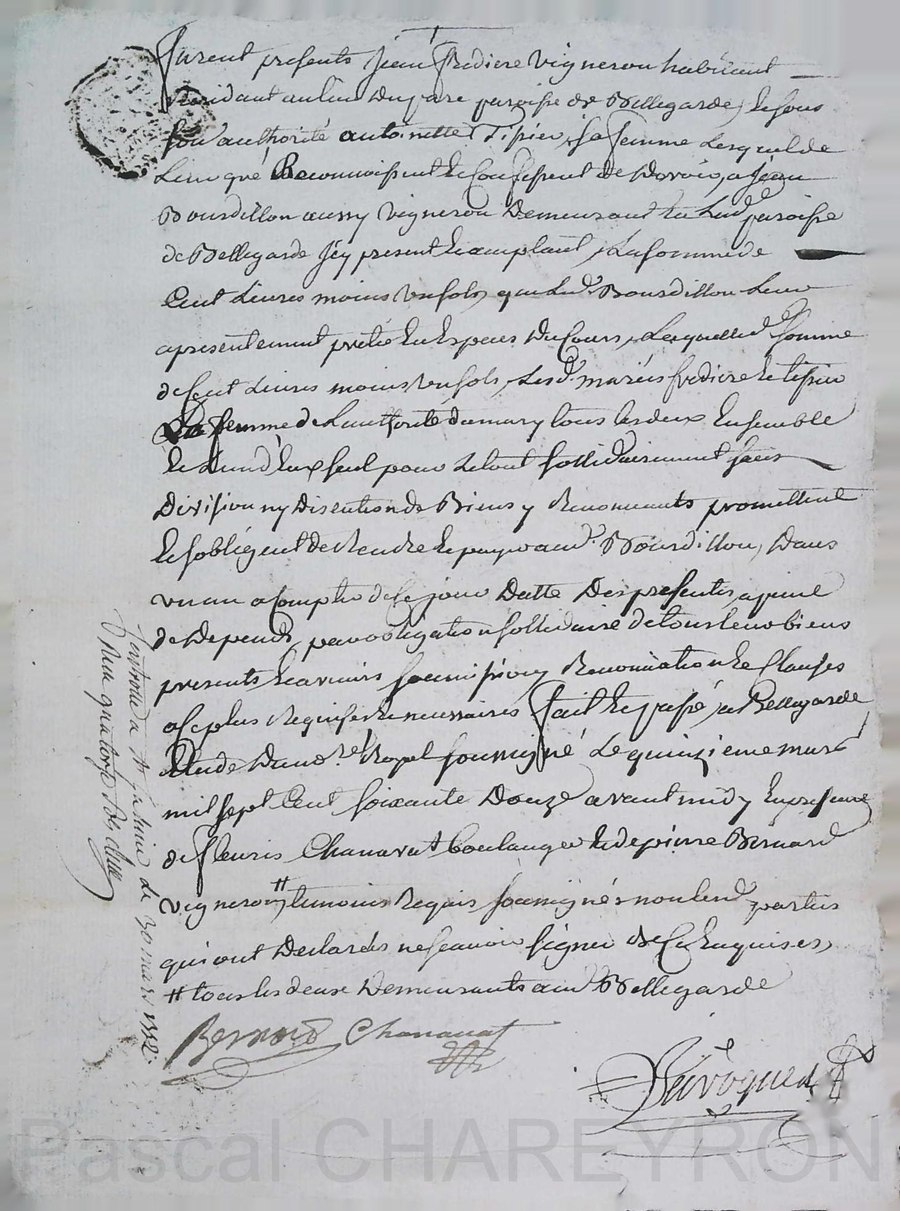 furent presents Jean frediere vigneron habitant
Residant au lieu Du pare paroisse de Bellegarde, et sous
son authorité antoinette Tissier, sa femme Lesquels de
Leur gré Reconnoissent et Confessent De Devoir, a jean
Bourdillon aussy vigneron Demeurant En Lad.e paroisse
de Bellegarde Jcy present et acceptant, La somme de
Cent Livres moins un sols, que Led. Bourdillon Leur
a presentement preté En Especes Du Cours, Laquelle d.e somme
de Cent Livres moins un sols, Les d. mariés fredière et tissier
sa femme de L'authorité du mary tous les deux Ensemble
et L'un d'Eux seul pour Le tout sollidairement sans
Division ny Discution de Biens y Renonceants promettent
et s'obligent de Rendre et payer aud. Bourdillon, Dans
un an a Compter de Ce jour Datte Des presentes, a peine
de Depends, par obligation sollidaire de tous Leurs biens
presents et avenirs soumissions Renonciation et Clauses
a Ce plus Requises et necessaires fait et passé, a Bellegarde
Etude Du no.re Royal soussigné Le quinzieme mars
mil sept Cent soixante Douze avant midy En presence
de fleuris Chanavat boulanger et de pierre Bernard
vigneron # temoins Requis soussignés non Lesd. parties
qui ont Declarés ne scavoir signer de Ce Enquises,
# tous les deux Demeurants aud. Bellegarde
Bernard Chanavat
Javogues
Controlé a st galmier Le 30 mars 1772.
Reçu quatorze sols
Pascal CHAREYRON